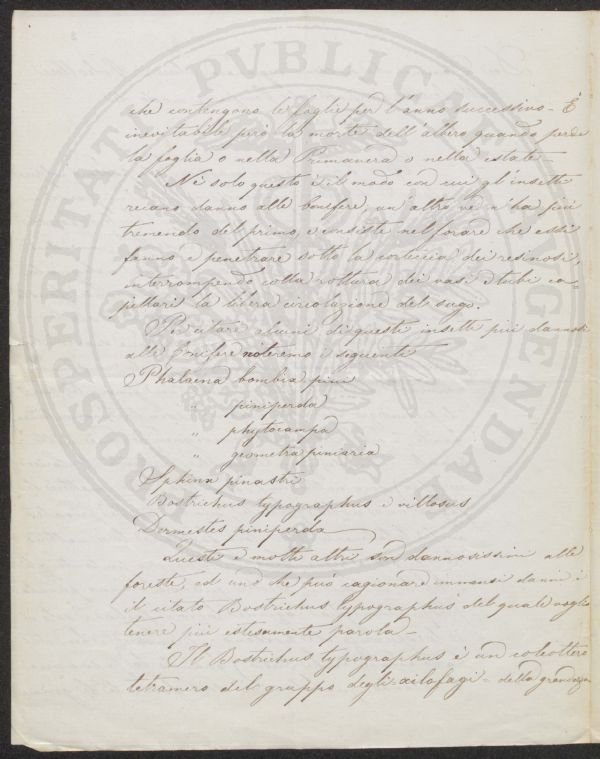 PROSPERITATI PVBLICAE AVGENDAE
che contengono le foglie per l'anno successivo - È
inevitabile però la morte dell'albero quando perde
la foglia o nella Primavera o nella estate -
Nè solo questo è il modo con cui gl'insetti
recano danno alle conifere, un'altro ve n'ha più
tremendo del primo, e consiste nel forare che essi
fanno e penetrare sotto la corteccia dei resinosi,
interrompendo colla rottura dei vasi e tubi ca-
pillari la libera circolazione del sugo.
Per citare alcuni di questi insetti più dannosi
alle Conifere noteremo i seguenti
Phalaena bombix pini
" piniperda
" phytocampa
" geometra piniaria
Sphinx pinastri
Bostrichus typographus e villosus
Dermestes piniperda
Questi e molti altri son dannosissimi alle
foreste, ed uno che può cagionare immensi danni è
il citato Bostrichus typographus del quale voglio
tenere più estesamente parola -
Il Bostrichus typographus è un coleottero
tetramero del gruppo degli xilofagi - della grandezza